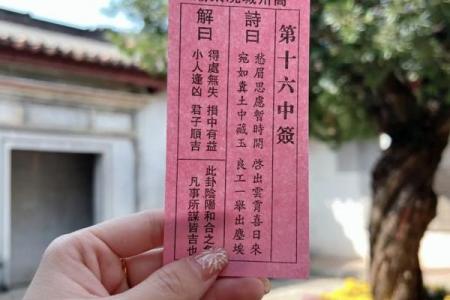 第十六中簽
詩曰
愁眉思慮暫時開 啓出雲霄喜日來
宛如糞土中藏玉 良工一舉出塵埃
解曰
得處無失 損中有益
小人逢凶 君子順吉
此卦陰陽和合之
凡事所謀皆吉也